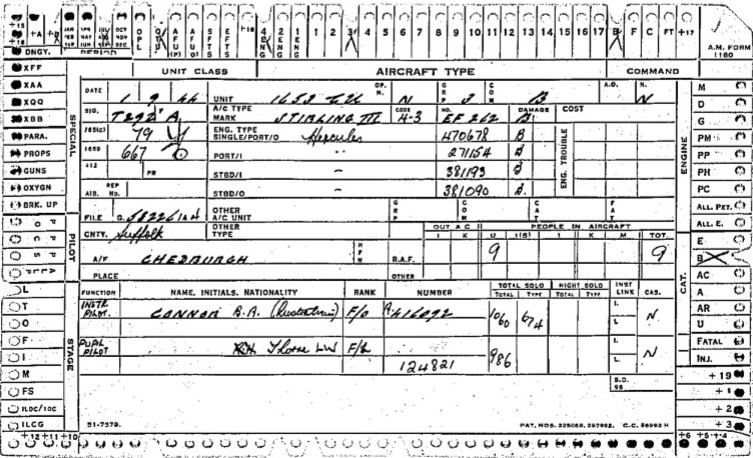 +15 +16 +A +B JAN FEB MAR APR MAY JUN JUL AUG SEP OCT NOV DEC OPL AFU(P) AFU(O) SFTS EFTS +18 4 ENG 2 ENG 1 ENG 1 2 3 4 5 6 7 8 9 10 11 12 13 14 15 16 17 B F C FT +17 A.M. FORM 1180
DNGY. PERIOD
UNIT CLASS AIRCRAFT TYPE COMMAND
DATE 1 9 44 UNIT 1653 OP. N. N GRP 3 COM B A.O. N. N
SIG. T292 A A/C TYPE MARK STIRLING III CODE 4-3 NO. EF 262 DAMAGE B COST
765(C) 79 ENG. TYPE SINGLE/PORT/O Hercules 470678 B
1659 667 PORT/I " 271154 B
412 PR STBD/I 381193 B
AIB. REP NO. STBD/O 381090 B
ENG. TROUBLE
FILE G. OTHER A/C UNIT GRP COM CAT FAT
CNTY. Suffolk OTHER TYPE OUT A C PEOPLE IN AIRCRAFT
I K U I(S) I K M TOT.
A/F CHEDBURGH R.A.F. 9 9
PLACE OTHER
FUNCTION NAME. INITIALS. NATIONALITY RANK NUMBER TOTAL SOLO NIGHT SOLO INST LINK CAS.
TOTAL TYPE TOTAL TYPE
INSTR PILOT. CONNOR B.A. (Australian) F/O A416092 1060 674 I. L. N
PUPIL PILOT Thorne LW F/L 124821 986 I. L. N
S.D. 96
51-7579. PAT. NOS. C.C.
SPECIAL
PILOT
STAGE
XFF
XAA
XQQ
XBB
PARA.
PROPS
GUNS
OXYGN
BRK. UP
L
T
O
F
I
M
FS
ILOC/IOC
ILCG
+12 +11 +10
ENGINE
CAT.
M
D
G
PM
PP
PH
PC
ALL. PET.
ALL. E.
E
B
AC
A
AR
U
FATAL
INJ.
+19
+1
+2
+3
+6 +5 +4